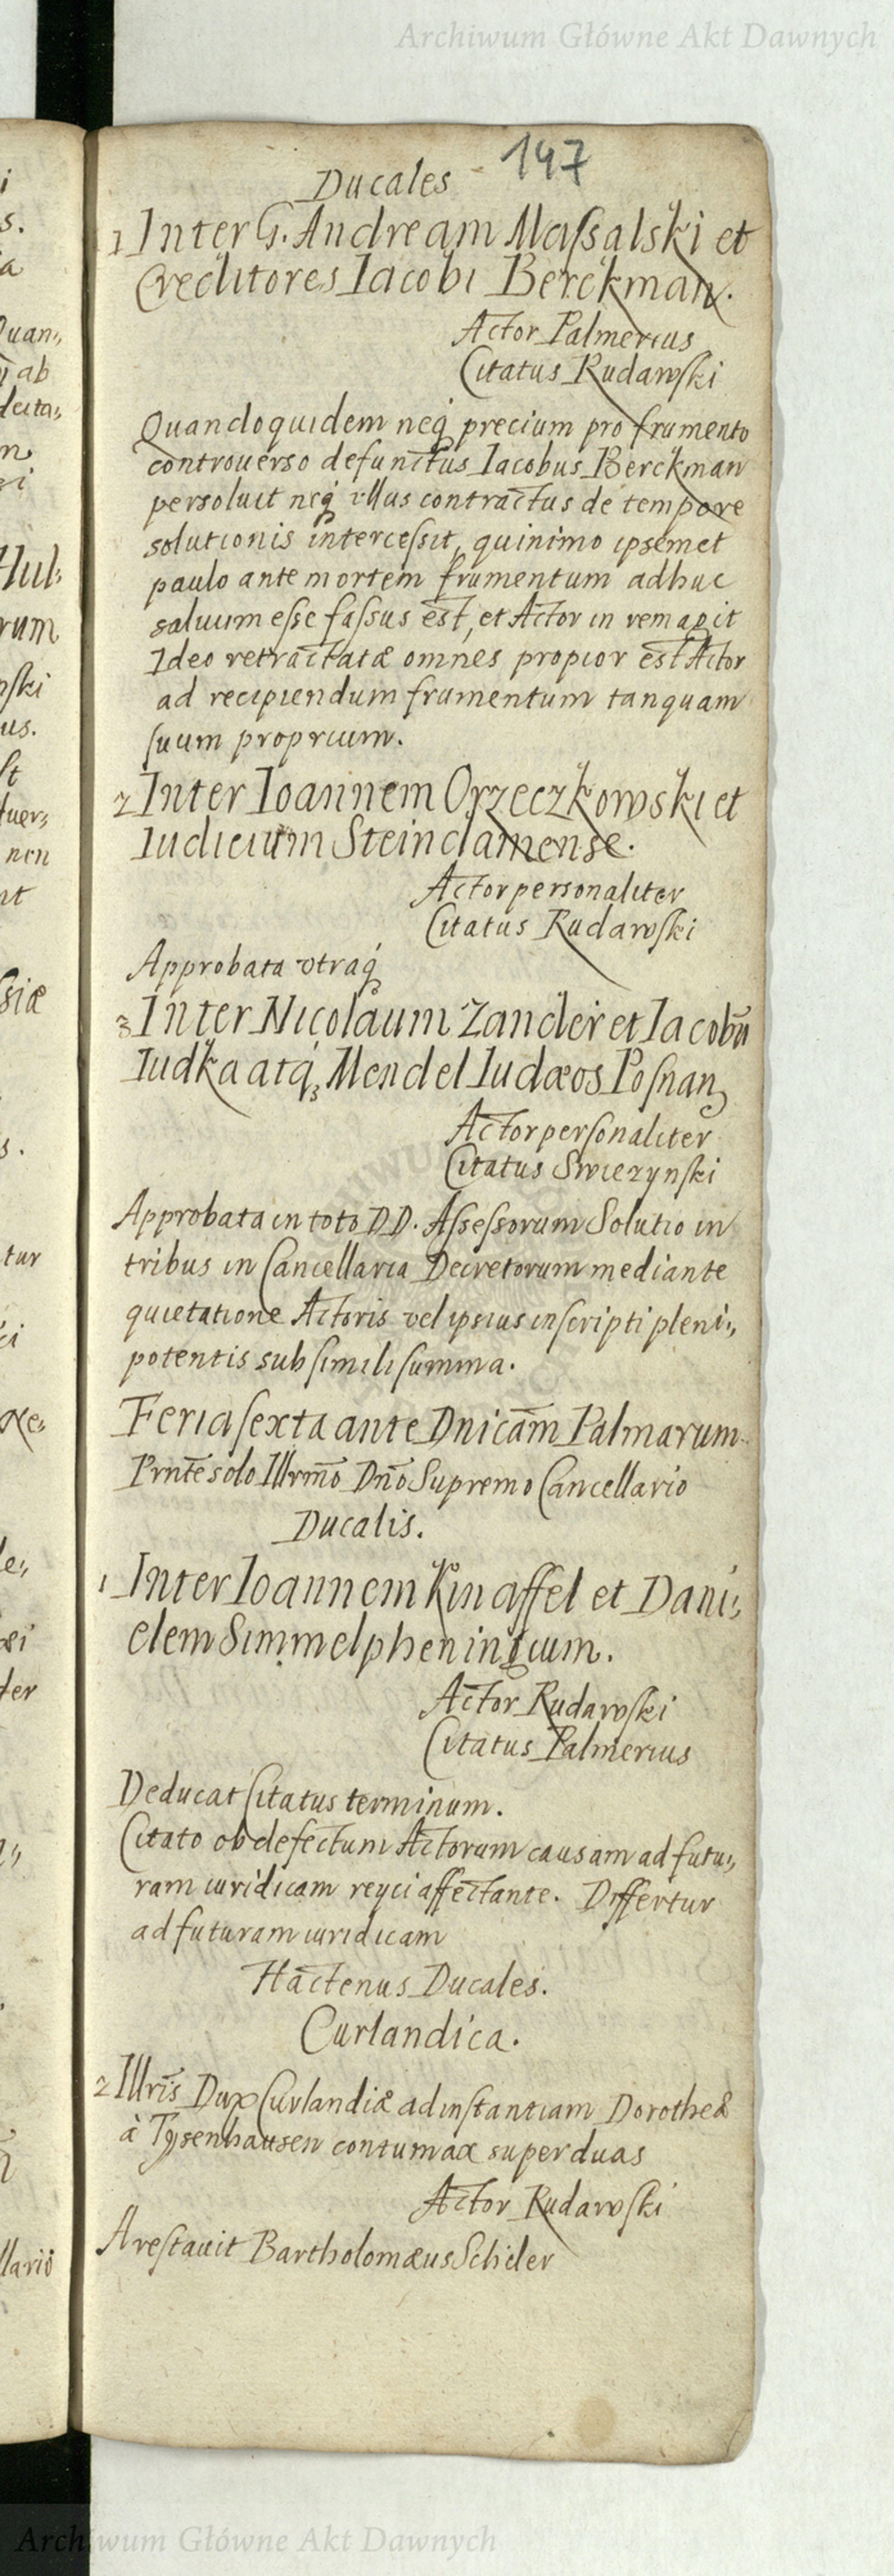 Archiwum Główne Akt Dawnych
147
Ducales
1 Inter G. Andream Massalski et
Creditores Iacobi Berckman.
Actor Palmerius
Citatus Rudawski
Quandoquidem neq precium pro frumento
controuerso defunctus Iacobus Berckman
persoluit neq vllus contractus de tempore
solutionis intercessit, quinimo ipsemet
paulo ante mortem frumentum adhuc
saluum esse fassus est, et Actor in rem agit
Ideo retractatæ omnes propior est Actor
ad recipiendum frumentum tanquam
suum proprium.
2 Inter Ioannem Orzeczkowski et
Iudicium Steindamense.
Actor personaliter
Citatus Rudawski
Approbata vtraq
3 Inter Nicolaum Zander et Iacobū
Iudka atq, Mendel Iudæos Posnan
Actor personaliter
Citatus Swiezynski
Approbata in toto DD. Assessorum Solutio in
tribus in Cancellaria Decretorum mediante
quietatione Actoris vel ipsius inscripti pleni,,
potentis sub simili summa.
Feria sexta ante Dnicam Palmarum
Prnte solo Illrmo Dno Supremo Cancellario
Ducalis.
1 Inter Ioannem Kinaffel et Dani,,
elem Simmelpheningium.
Actor Rudawski
Citatus Palmerius
Deducat Citatus terminum.
Citato ob defectum Actorum causam ad futu,,
ram iuridicam reyci affectante. Differtur
ad futuram iuridicam
Hactenus Ducales.
Curlandica.
2 Illris Dux Curlandiæ ad instantiam Dorotheæ
à Tysenhausen contumax super duas
Actor Rudawski
Arestauit Bartholomæus Scheler
Archiwum Główne Akt Dawnych